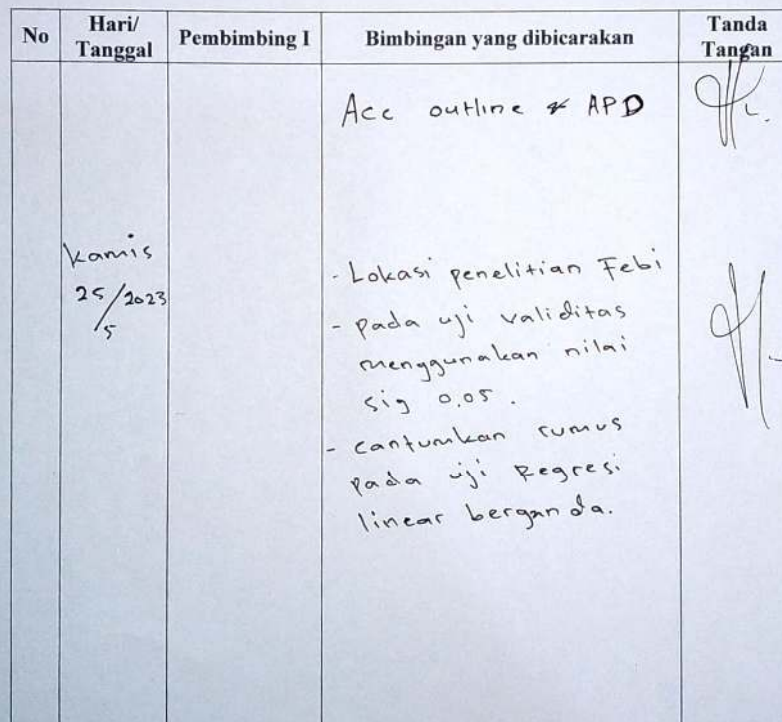 No
Hari/
Tanggal
Pembimbing I
Bimbingan yang dibicarakan
Tanda
Tangan
Acc outline & APD
Kamis
25/5/2023
- Lokasi penelitian Febi
- pada uji validitas
menggunakan nilai
sig 0,05.
- cantumkan rumus
pada uji Regresi
linear berganda.